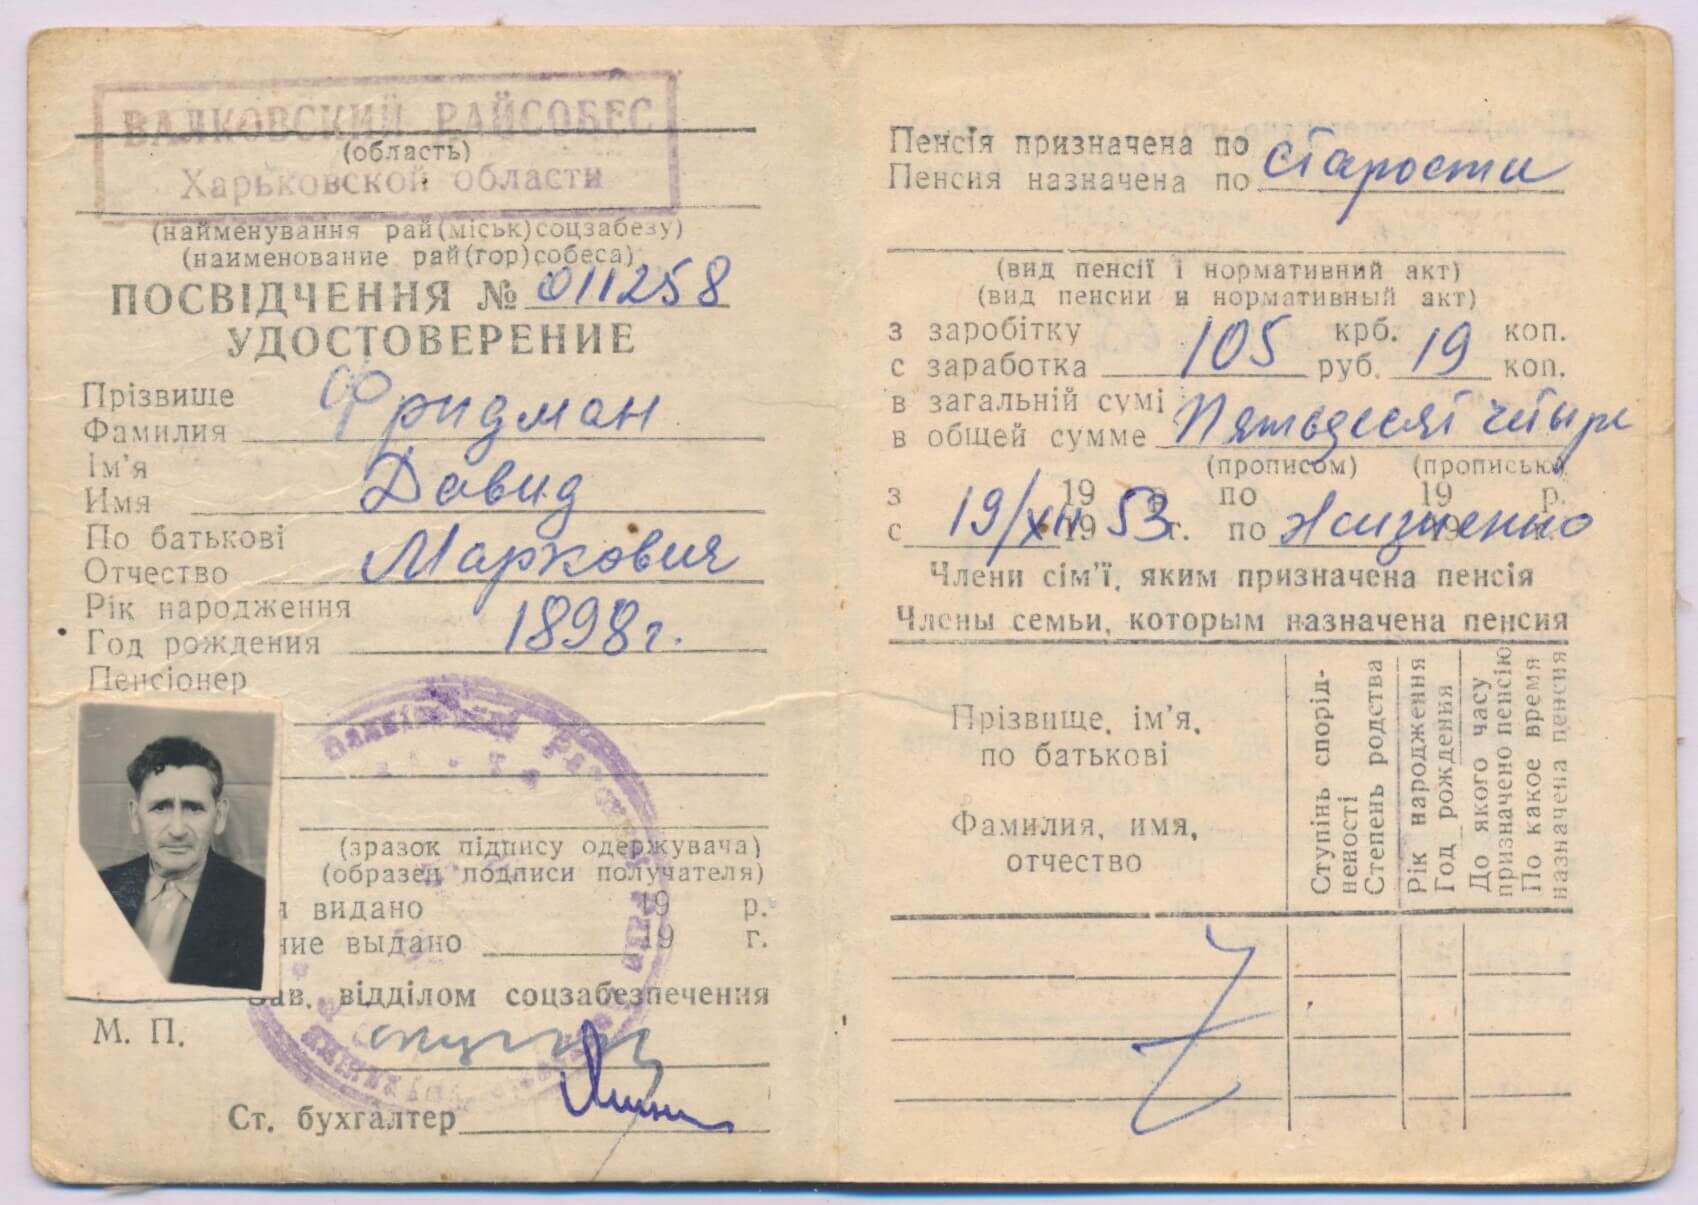 ВАЛКОВСКИЙ РАЙСОБЕС
(область)
Харьковской области
(найменування рай(міськ)соцзабезу)
(наименование рай(гор)собеса)
ПОСВІДЧЕННЯ № 011258
УДОСТОВЕРЕНИЕ
Прізвище
Фамилия Фридман
Ім'я
Имя Давид
По батькові
Отчество Маркович
Рік народження
Год рождения 1898г.
Пенсіонер
(зразок підпису одержувача)
(образец подписи получателя)
я видано 19 р.
ние выдано 19 г.
Зав. відділом соцзабезпечення
М. П.
Ст. бухгалтер
Пенсія призначена по
Пенсия назначена по старости
(вид пенсії і нормативний акт)
(вид пенсии и нормативный акт)
з заробітку крб. коп.
с заработка 105 руб. 19 коп.
в загальній сумі
в общей сумме Пятьдесят четыре
(прописом) (прописью)
з 19 р. по 19 р.
с 19/XII 19 53 г. по Жизненно 19 г.
Члени сім'ї, яким призначена пенсія
Члены семьи, которым назначена пенсия
Прізвище, ім'я,
по батькові
Фамилия, имя,
отчество
Ступінь спорід-
неності
Степень родства
Рік народження
Год рождения
До якого часу
призначено пенсію
По какое время
назначена пенсия